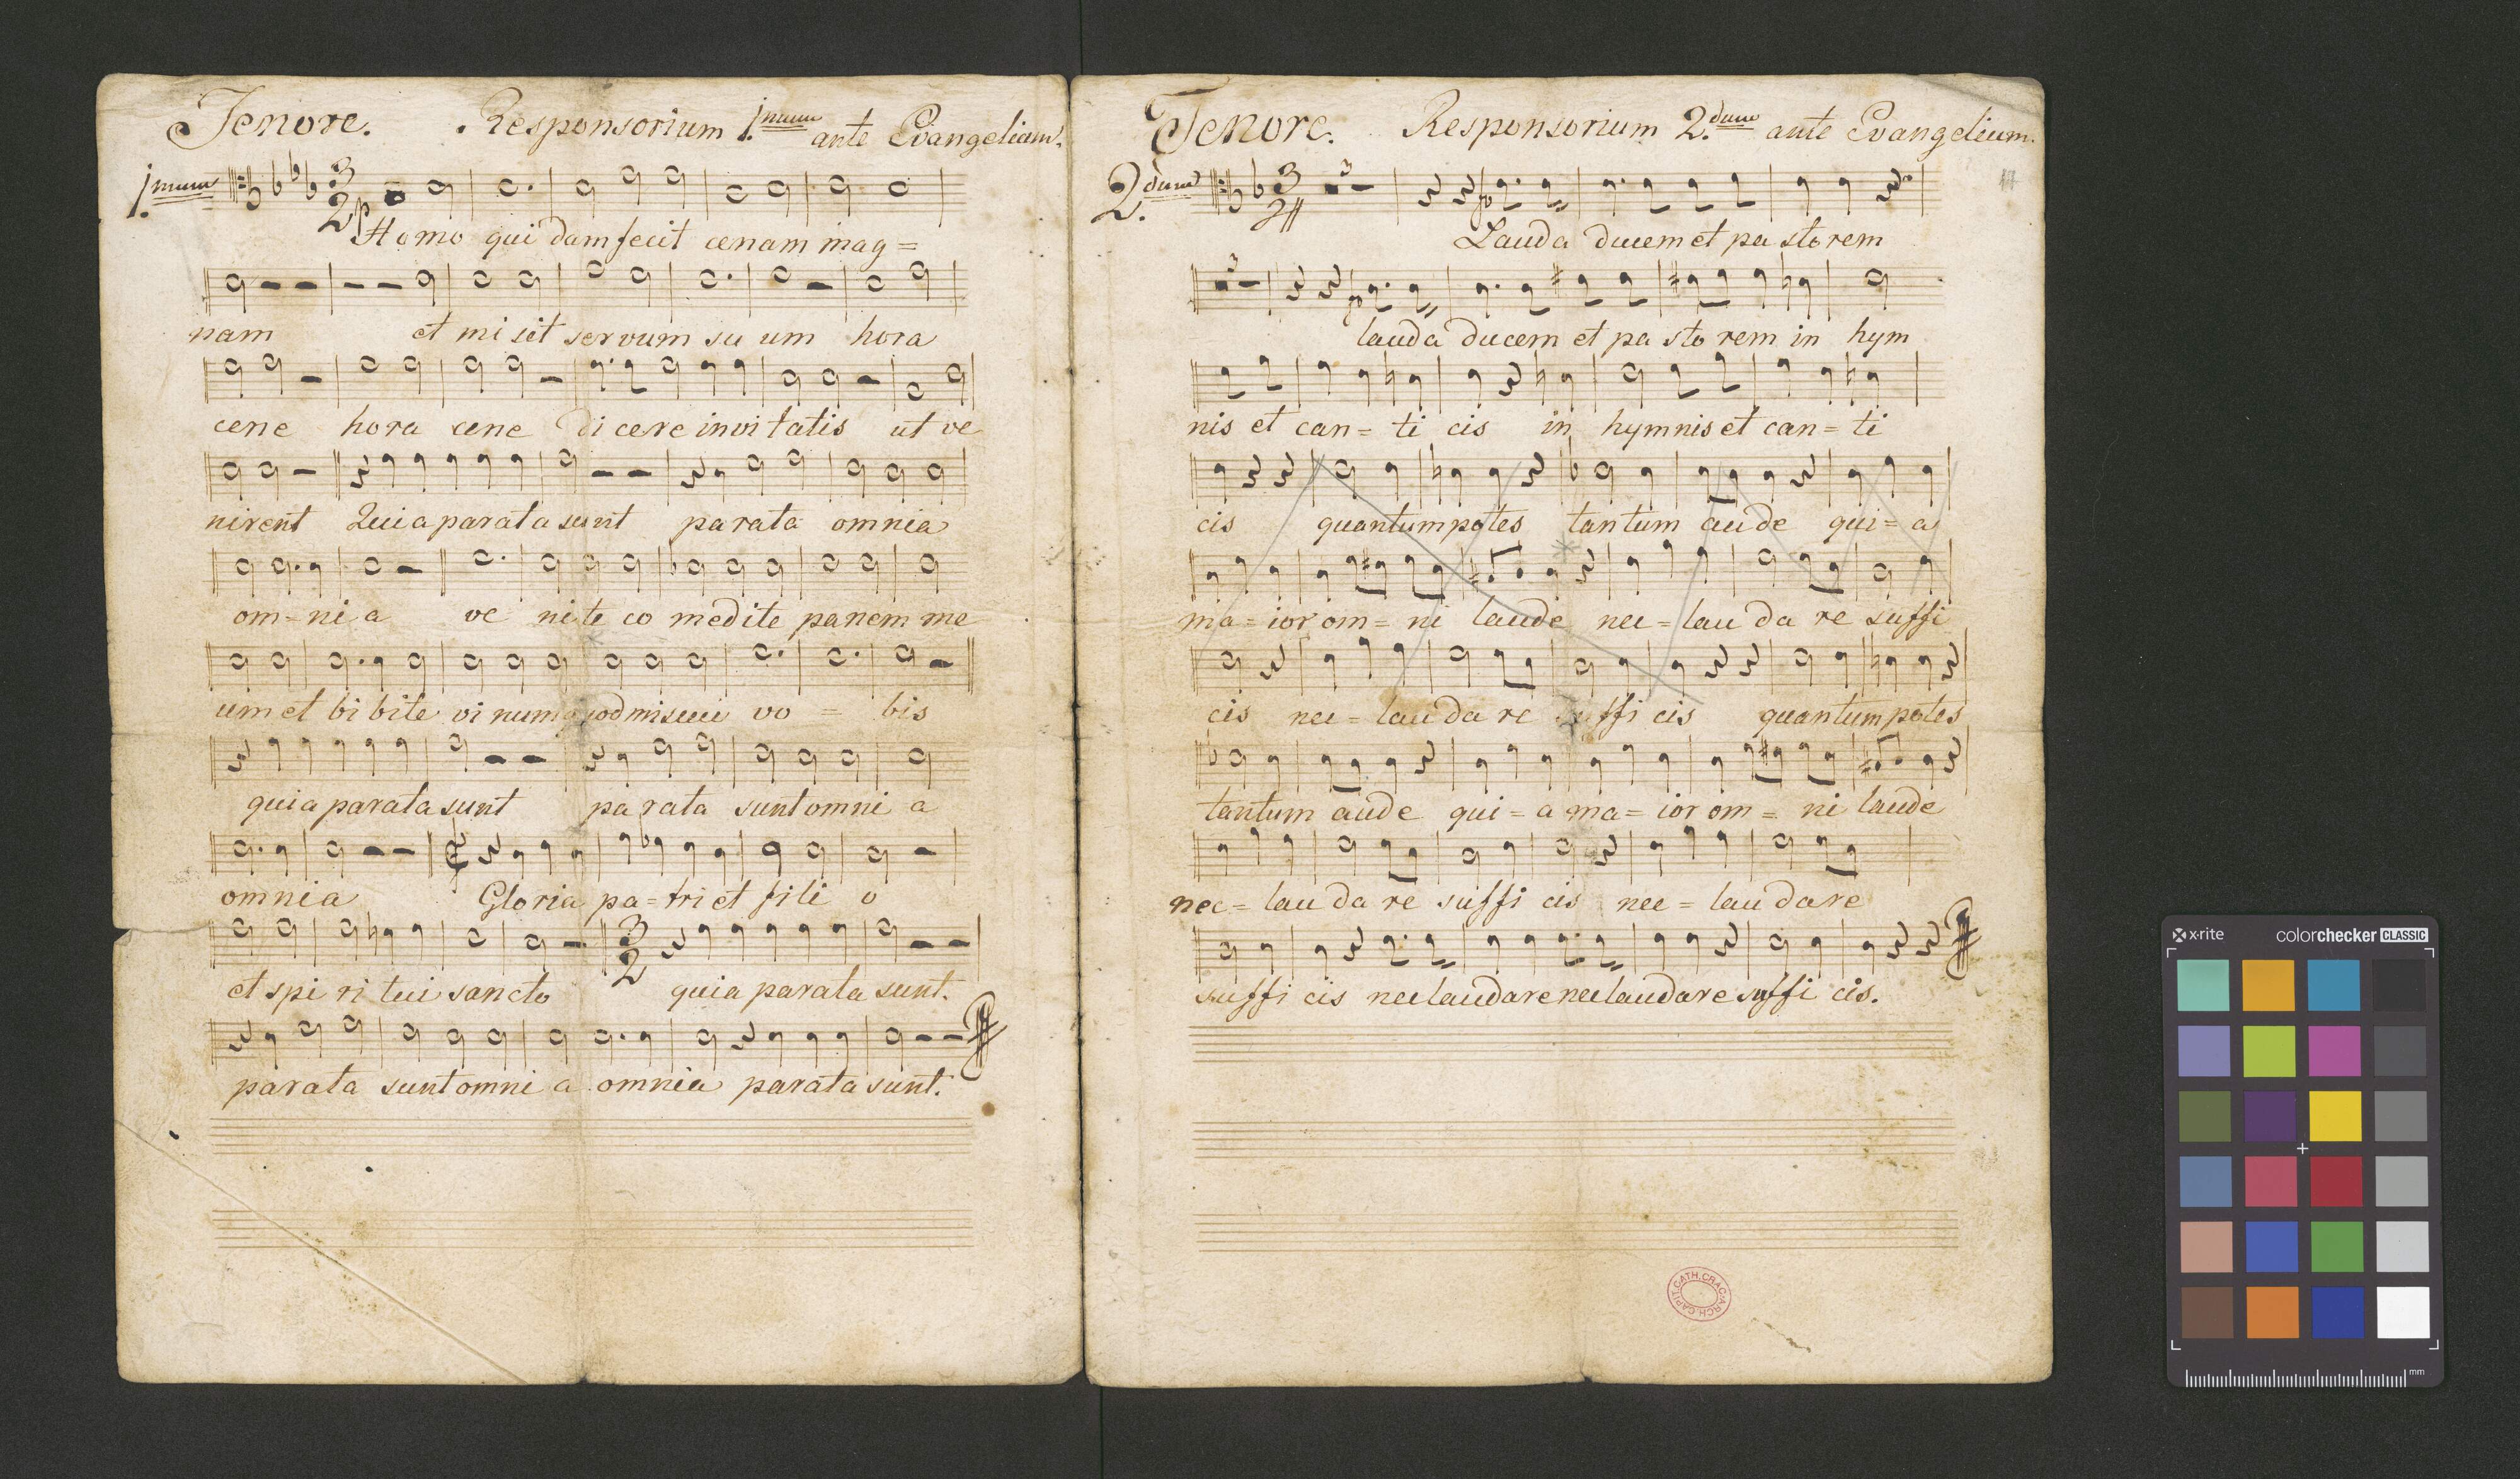 Tenore. Responsorium 1.mum ante Evangelium.
1.mum
3 2 p
Homo qui dam fecit cenam mag=
nam et mi sit servum su um hora
cene hora cene di cere invi tatis ut ve
nirent Quia parata sunt parata omnia
om=ni a ve nite co medite panem me
um et bi bite vi num quod miscui vo = bis
quia parata sunt parata sunt omni a
omnia Gloria pa=tri et fili o
et spi ri tui sancto 3 2 quia parata sunt.
parata sunt omni a omnia parata sunt.
Tenore. Responsorium 2.dum ante Evangelium.
2.dum
3 3
Lauda ducem et pa sto rem
3
lauda ducem et pa sto rem in hym
nis et can= ti cis in hymnis et can= ti
cis quantum potes tantum aude qui= a
ma= ior om= ni laude nec= lau da re suffi
cis nec= lau da re suffi cis quantum potes
tantum aude qui= a ma= ior om= ni laude
nec= lau da re suffi cis nec= lau dare
suffi cis nec laudare nec laudare suffi cis.
ARCH. CAPIT. CATH. CRAC.
x-rite colorchecker CLASSIC
mm